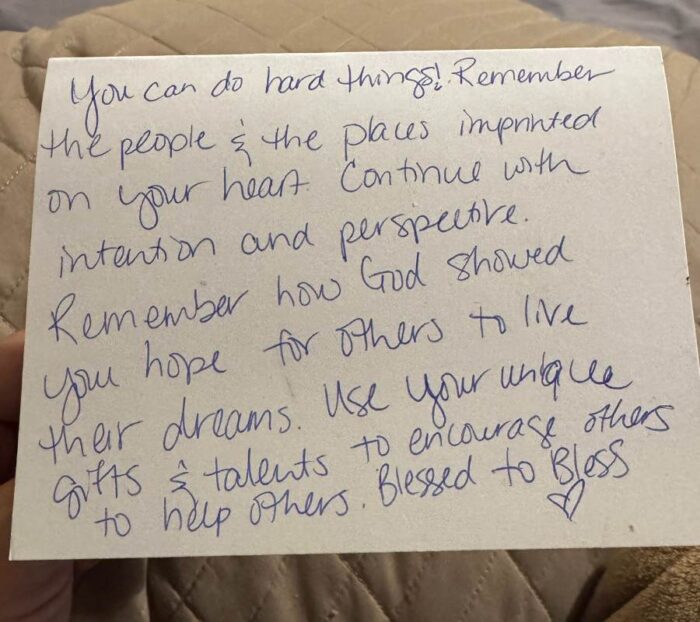 You can do hard things! Remember
the people & the places imprinted
on your heart. Continue with
intention and perspective.
Remember how God showed
you hope for others to live
their dreams. Use your unique
gifts & talents to encourage others
to help others. Blessed to Bless
♡